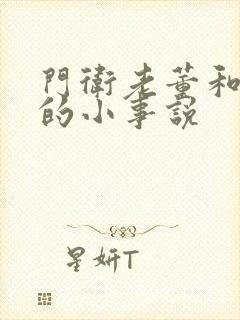 門衛老董和
的小事説
星妍T